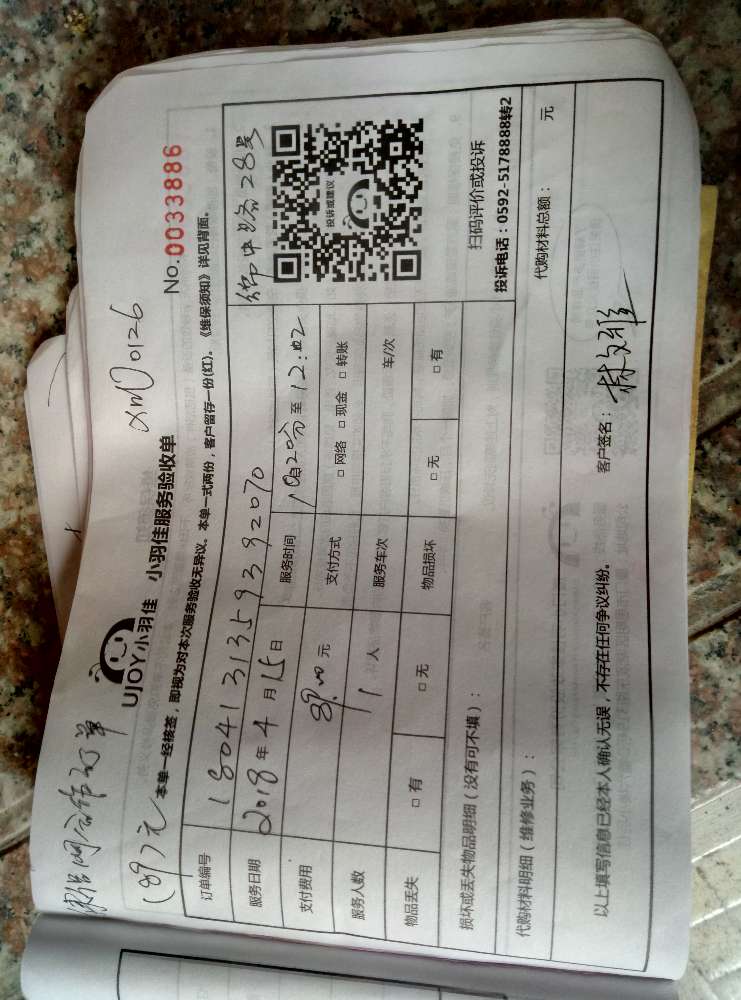 合作订单
(89)元
xm00126
UJOY小羽佳 小羽佳服务验收单
No.0033886
本单一经核签，即视为对本次服务验收无异议。本单一式两份，客户留存一份(红)。《维保须知》详见背面。
订单编号 1804131359392070
28号
服务日期 2018年4月15日 服务时间 至12:02
支付费用 89.00元 支付方式 □网络 □现金 □转账
服务人数 1人 服务车次 车/次
物品丢失 □有 □无 物品损坏 □无 □有
投诉或建议
扫码评价或投诉
投诉电话：0592-5178888转2
损坏或丢失物品明细（没有可不填）：
代购材料明细（维修业务）： 代购材料总额： 元
以上填写信息已经本人确认无误，不存在任何争议纠纷。 客户签名：